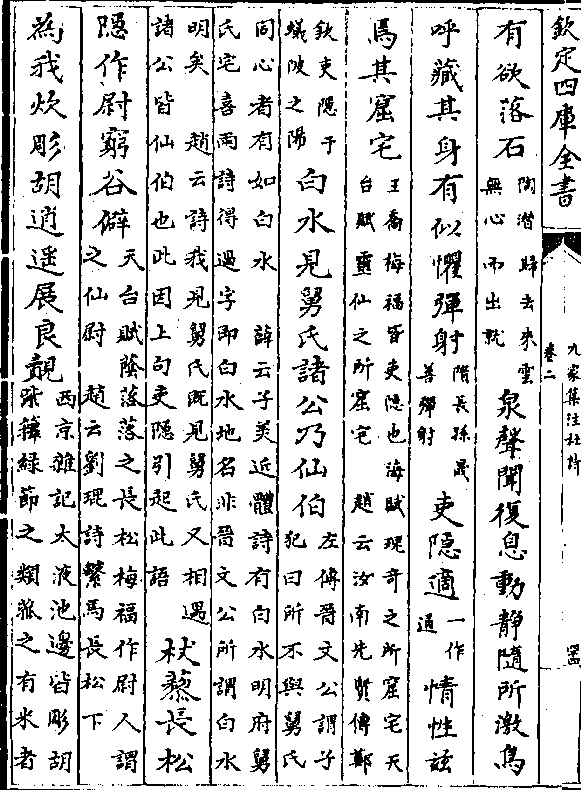 欽定四庫全書
九家集注杜詩
卷二
有欲落石陶潛歸去來雲無心而出岫泉聲聞復息動靜隨所激鳥
呼藏其身有似懼彈射隋長孫晟善彈射吏隱適一作通情性兹
焉其窟宅王喬梅福皆吏隱也海賦瑰奇之所窟宅天台賦靈仙之所窟宅 趙云汝南先賢傳鄭
欽吏隱于蟻陂之陽白水見舅氏諸公乃仙伯左傳晉文公謂子犯曰所不與舅氏
同心者有如白水 薛云子美近體詩有白水明府舅氏宅喜雨詩得過字即白水地名非晉文公所謂白水
明矣 趙云詩我見舅氏既見舅氏又相遇諸公皆仙伯也此因上句吏隱引起此語杖藜長松
隂作尉窮谷僻天台賦蔭落落之長松梅福作尉人謂之仙尉 趙云劉琨詩繫馬長松下
為我炊彫胡逍遥展良覿西京雜記太液池邊皆彫胡紫籜緑節之類菰之有米者